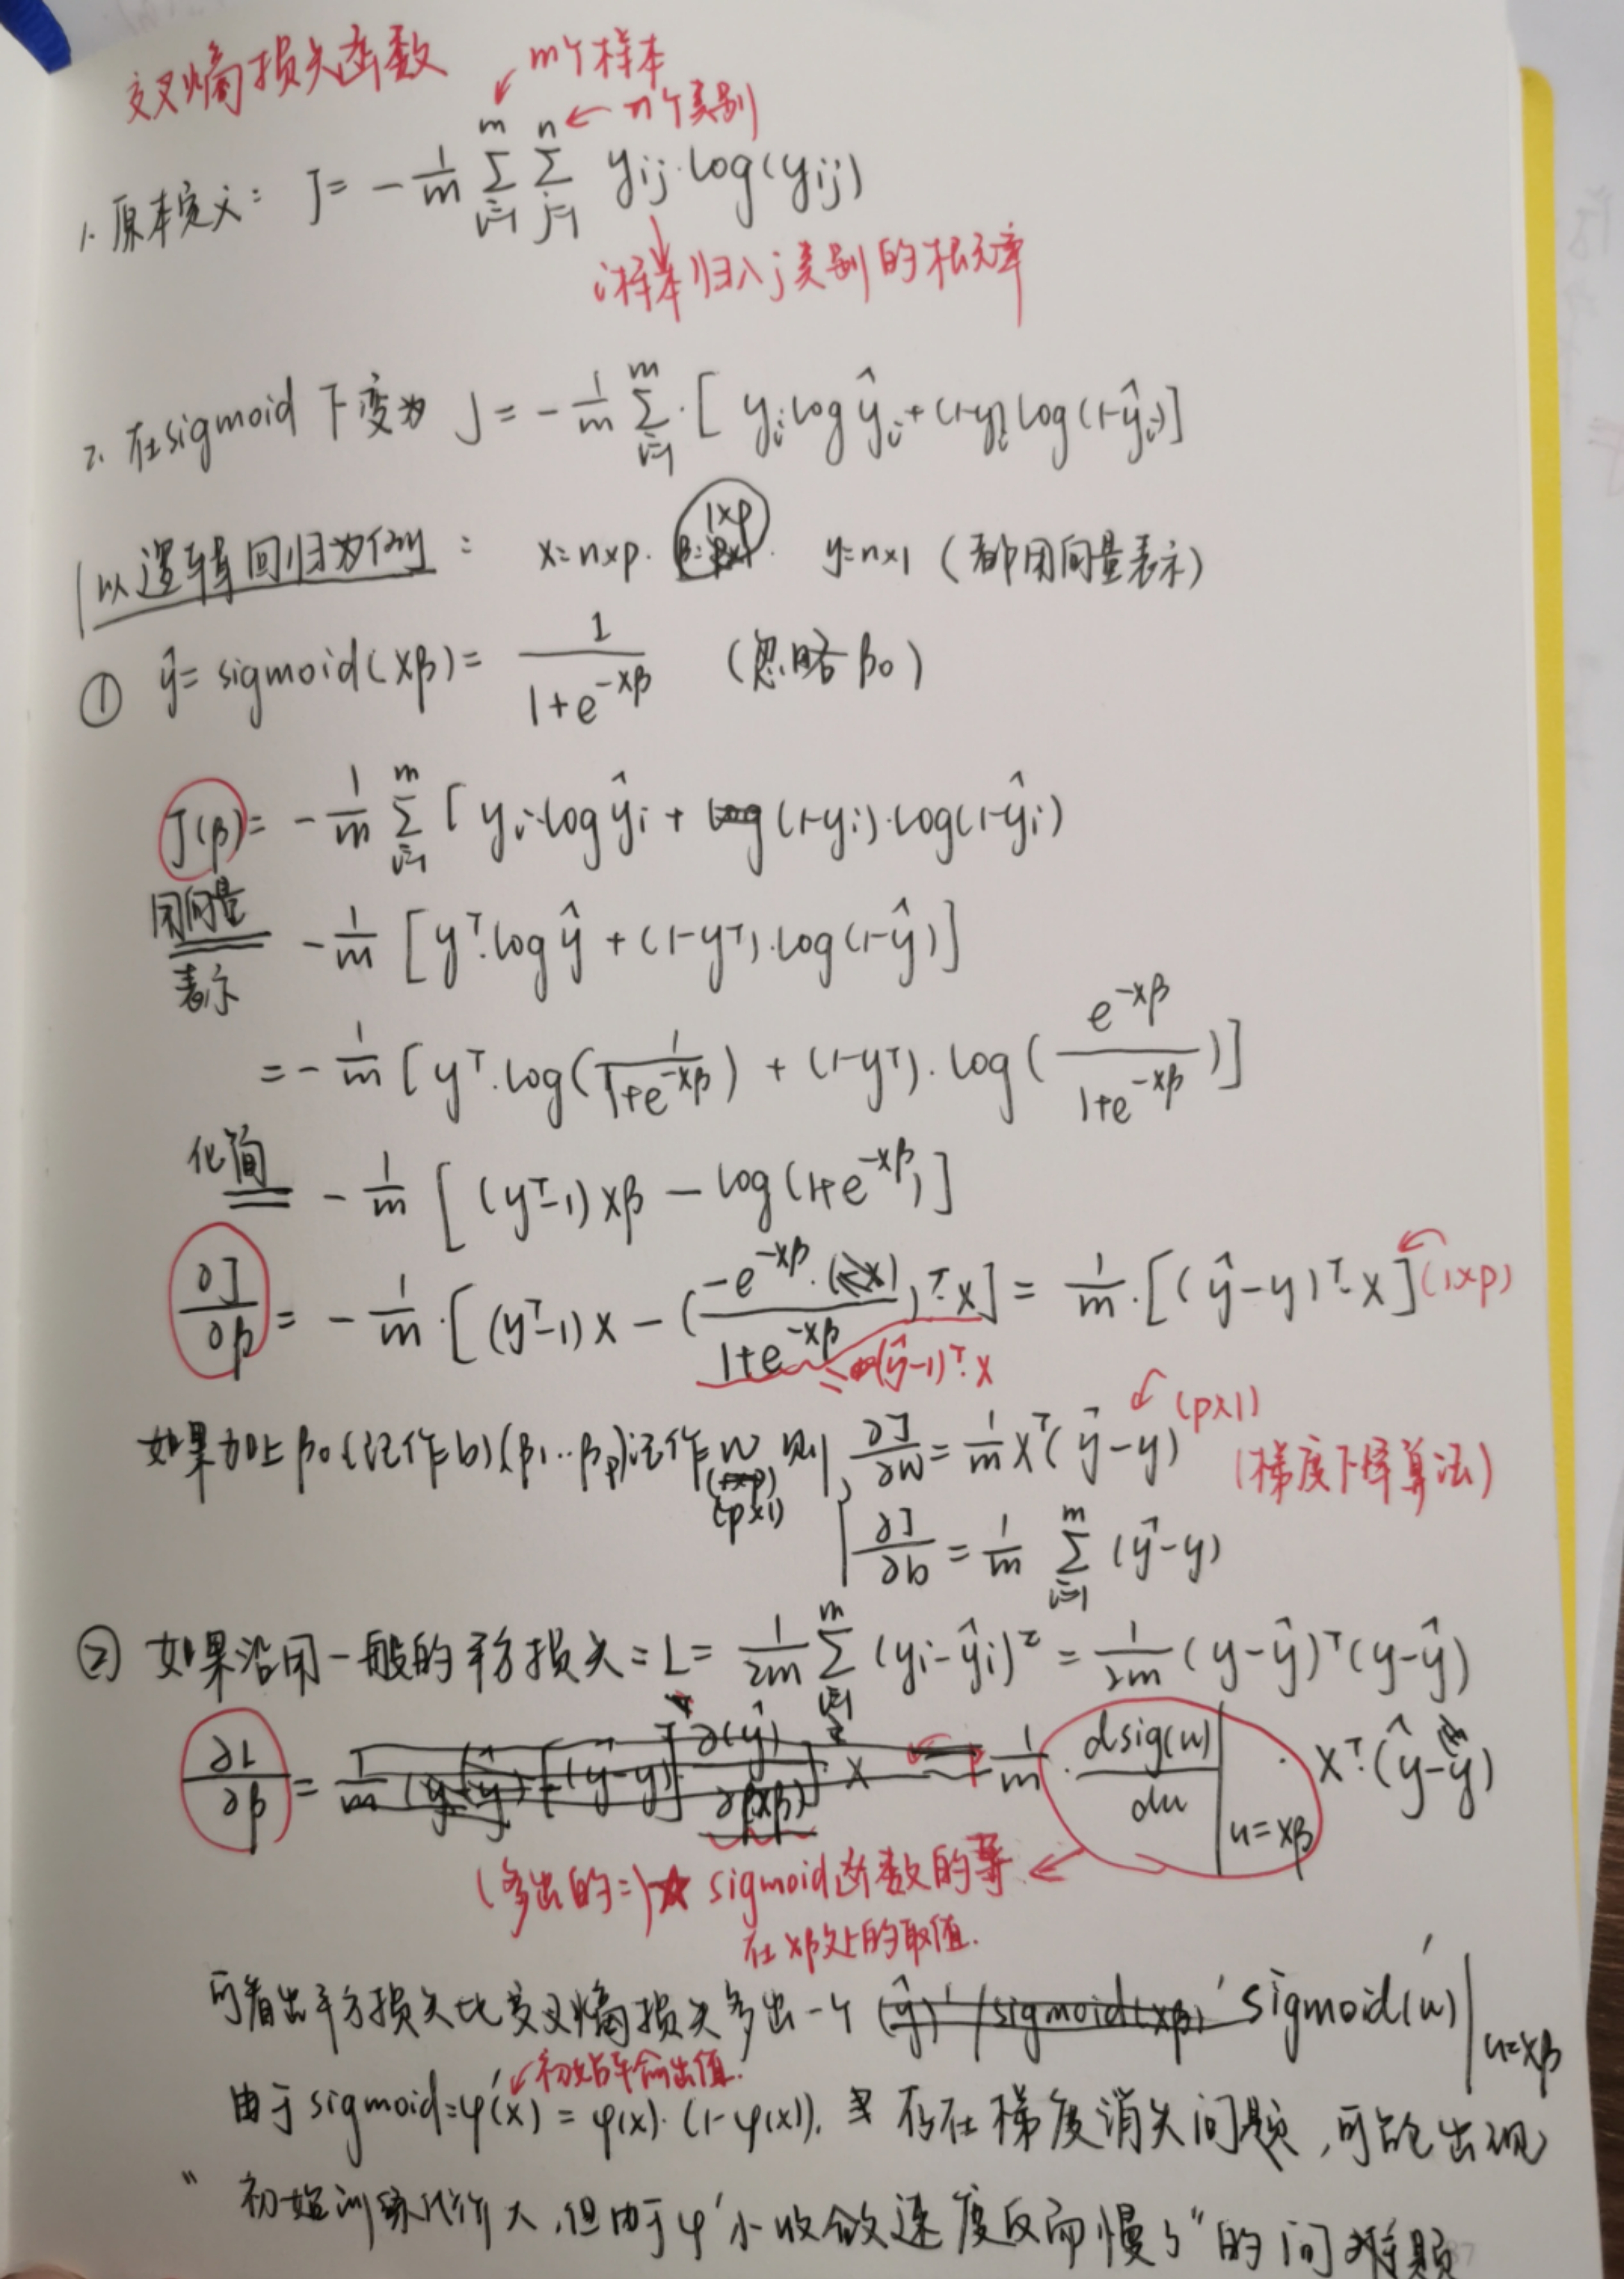 交叉熵损失函数
m个样本
n个类别
1. 原本定义: J = -1/m Σ(i=1→m) Σ(j=1→n) yij·log(yij)
i样本归入j类别的概率
2. 在sigmoid下变为 J = -1/m Σ(i=1→m)·[yi log ŷi + (1-yi) log(1-ŷi)]
以逻辑回归为例: x=n×p. 1×p y=n×1 (都用向量表示)
① ŷ = sigmoid(xβ) = 1/(1+e^(-xβ)) (忽略β0)
J(β) = -1/m Σ(i=1→m) [yi·log ŷi + (1-yi)·log(1-ŷi)
用向量表示 = -1/m [y^T·log ŷ + (1-y^T)·log(1-ŷ)]
= -1/m [y^T·log(1/(1+e^(-xβ))) + (1-y^T)·log(e^(-xβ)/(1+e^(-xβ)))]
化简 = -1/m [(y^T-1)xβ - log(1+e^(-xβ))]
∂J/∂β = -1/m·[(y^T-1)x - (-e^(-xβ)/(1+e^(-xβ)))^T·x] = 1/m·[(ŷ-y)^T·x] (1×p)
= (ŷ-1)^T·x
如果加上β0(记作b)(β1…βp)记作w (p×1) 则, ∂J/∂w = 1/m x^T(ŷ-y) (p×1)
(梯度下降算法)
∂J/∂b = 1/m Σ(i=1→m) (ŷ-y)
② 如果沿用一般的平方损失: L = 1/2m Σ(i=1→m) (yi-ŷi)² = 1/2m (y-ŷ)^T(y-ŷ)
∂L/∂β = 1/m·dsig(u)/du|u=xβ · x^T·(ŷ-y)
(多出的:)☆ sigmoid函数的导
在xβ处上的取值.
可看出平方损失比交叉熵损失多出一个 sigmoid(u)'|u=xβ
初始年输出值.
由于sigmoid: φ'(x) = φ(x)·(1-φ(x)), 存在梯度消失问题,可能出现
"初始训练代价大,但由于φ'小收敛速度反而慢了"的问难题